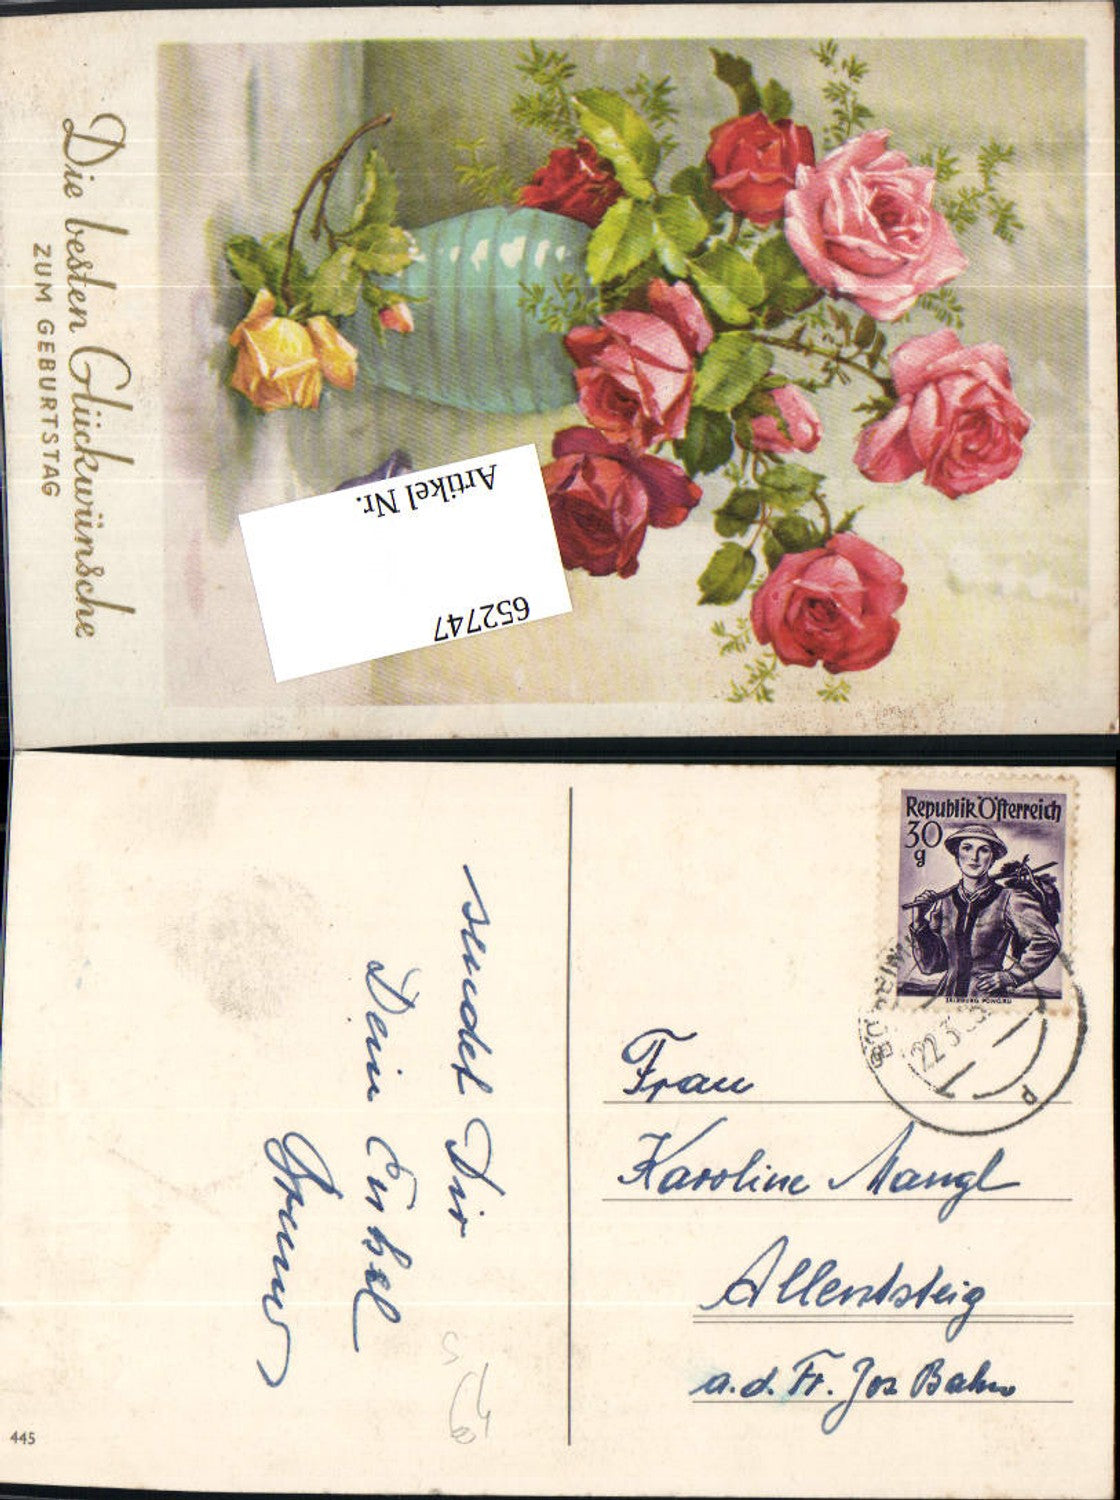 Die besten Glückwünsche
ZUM GEBURTSTAG
Artikel Nr.
652747
Republik Österreich
30
g
SALZBURG PONGAU
22.3.
sendet Dir
Dein Enkel
Frau
Karoline Mangl
Allentsteig
a.d. Fr. Jos Bahn
445